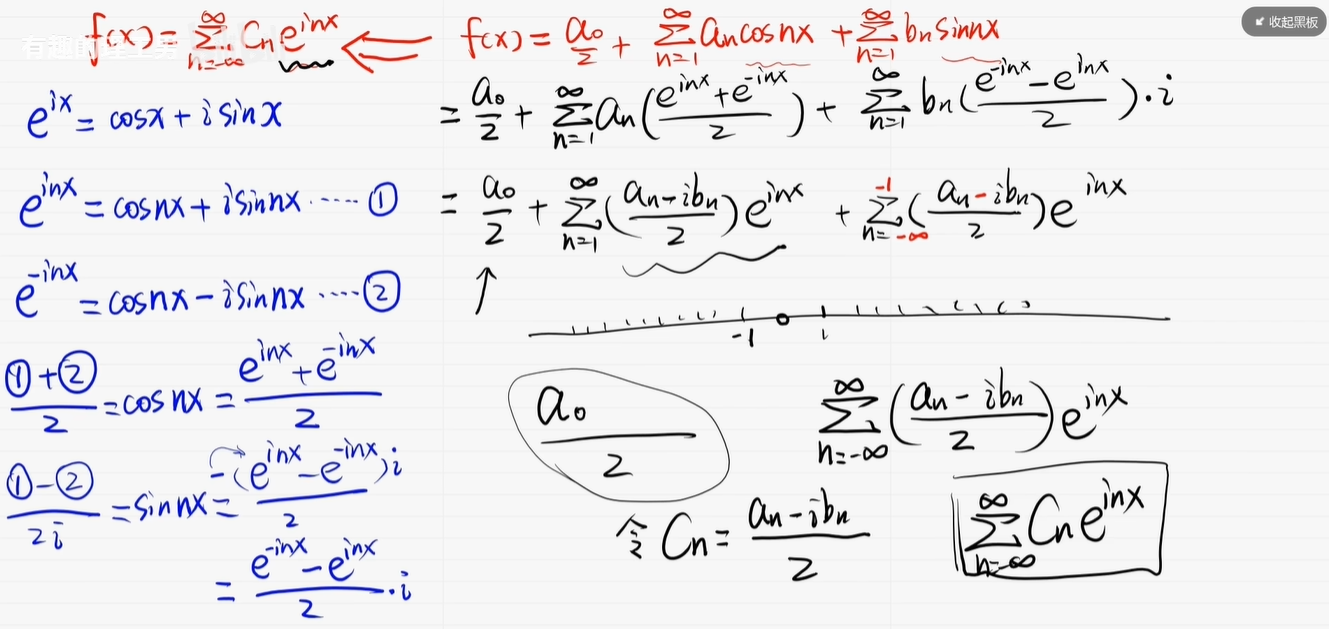 f(x) = \sum_{n=-\infty}^{\infty} C_n e^{inx} ⇐ f(x) = \frac{a_0}{2} + \sum_{n=1}^{\infty} a_n cos nx + \sum_{n=1}^{\infty} b_n sin nx
收起黑板
e^{ix} = cos x + i sin x
e^{inx} = cos nx + i sin nx ····· ①
e^{-inx} = cos nx - i sin nx ····· ②
\frac{①+②}{2} = cos nx = \frac{e^{inx} + e^{-inx}}{2}
\frac{①-②}{2i} = sin nx = \frac{-(e^{inx} - e^{-inx})i}{2}
= \frac{e^{-inx} - e^{inx}}{2} · i
= \frac{a_0}{2} + \sum_{n=1}^{\infty} a_n (\frac{e^{inx} + e^{-inx}}{2}) + \sum_{n=1}^{\infty} b_n (\frac{e^{-inx} - e^{inx}}{2}) · i
= \frac{a_0}{2} + \sum_{n=1}^{\infty} (\frac{a_n - ib_n}{2}) e^{inx} + \sum_{n=-\infty}^{-1} (\frac{a_n - ib_n}{2}) e^{inx}
-1 1
\frac{a_0}{2} \sum_{n=-\infty}^{\infty} (\frac{a_n - ib_n}{2}) e^{inx}
令 C_n = \frac{a_n - ib_n}{2} \sum_{n=-\infty}^{\infty} C_n e^{inx}